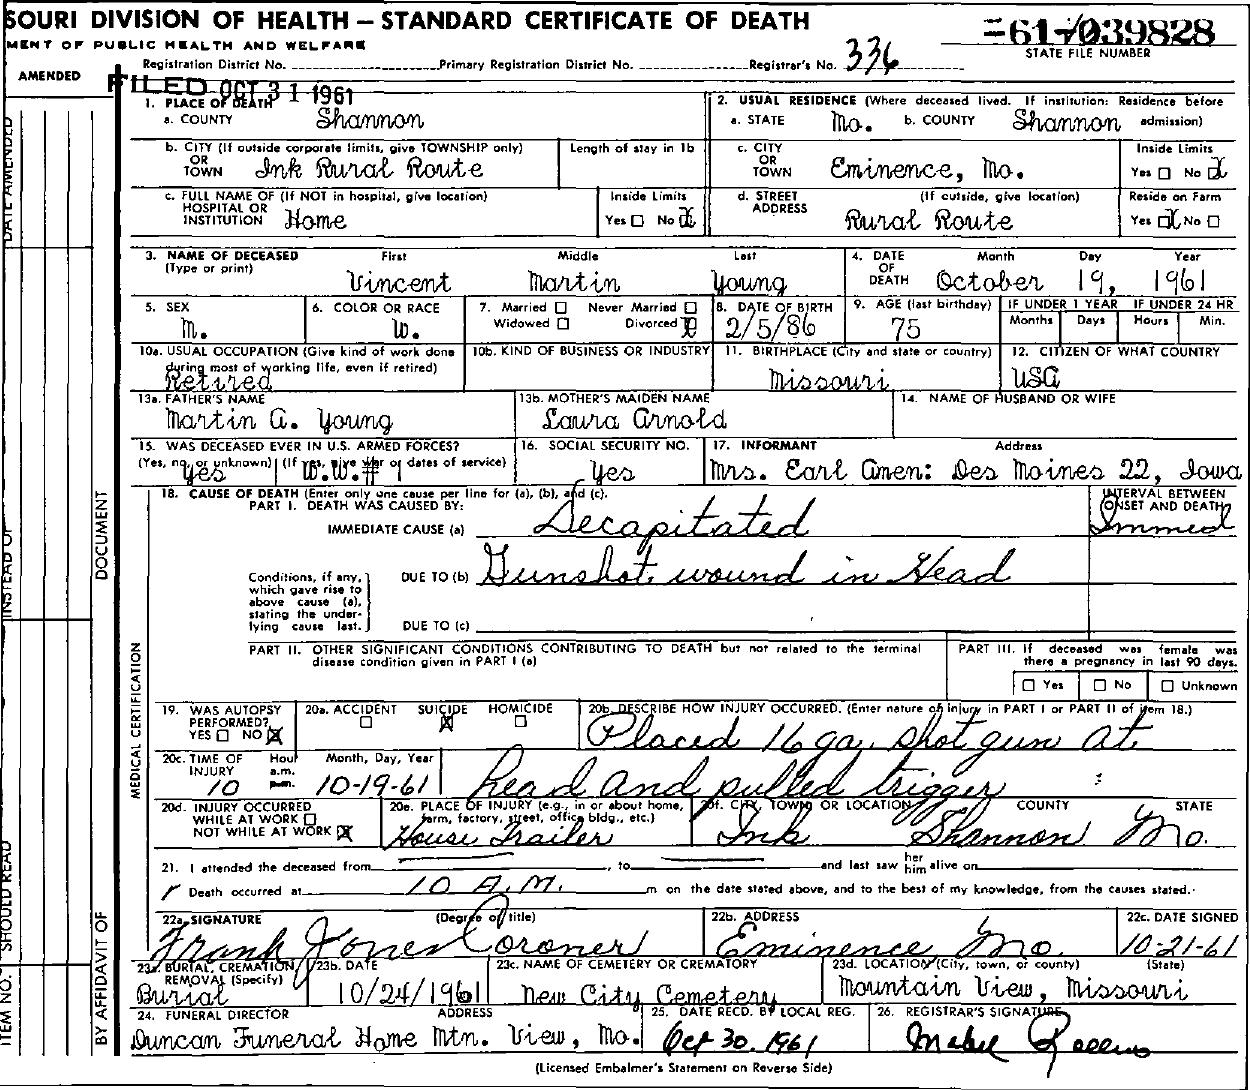 SOURI DIVISION OF HEALTH — STANDARD CERTIFICATE OF DEATH
MENT OF PUBLIC HEALTH AND WELFARE
=61-039828
STATE FILE NUMBER
AMENDED
Registration District No. Primary Registration District No. Registrar's No. 336
FILED OCT 31 1961
1. PLACE OF DEATH
a. COUNTY Shannon
2. USUAL RESIDENCE (Where deceased lived. If institution: Residence before admission)
a. STATE Mo. b. COUNTY Shannon
b. CITY (If outside corporate limits, give TOWNSHIP only) OR TOWN Ink Rural Route
Length of stay in 1b
c. CITY OR TOWN Eminence, Mo.
Inside Limits Yes □ No ☒
c. FULL NAME OF (If NOT in hospital, give location) HOSPITAL OR INSTITUTION Home
Inside Limits Yes □ No ☒
d. STREET ADDRESS (If outside, give location) Rural Route
Reside on Farm Yes ☒ No □
3. NAME OF DECEASED (Type or print) First Middle Last
Vincent Martin Young
4. DATE OF DEATH Month Day Year
October 19, 1961
5. SEX M.
6. COLOR OR RACE W.
7. Married □ Never Married □ Widowed □ Divorced ☒
8. DATE OF BIRTH 2/5/86
9. AGE (last birthday) 75
IF UNDER 1 YEAR Months Days
IF UNDER 24 HR Hours Min.
10a. USUAL OCCUPATION (Give kind of work done during most of working life, even if retired) Retired
10b. KIND OF BUSINESS OR INDUSTRY
11. BIRTHPLACE (City and state or country) Missouri
12. CITIZEN OF WHAT COUNTRY USA
13a. FATHER'S NAME Martin A. Young
13b. MOTHER'S MAIDEN NAME Laura Arnold
14. NAME OF HUSBAND OR WIFE
15. WAS DECEASED EVER IN U.S. ARMED FORCES?
(Yes, no, or unknown) (If yes, give war or dates of service)
Yes W.W.# 1
16. SOCIAL SECURITY NO. Yes
17. INFORMANT Address
Mrs. Earl Amen: Des Moines 22, Iowa
18. CAUSE OF DEATH (Enter only one cause per line for (a), (b), and (c).
PART I. DEATH WAS CAUSED BY:
IMMEDIATE CAUSE (a) Decapitated
INTERVAL BETWEEN ONSET AND DEATH
Immed
Conditions, if any, which gave rise to above cause (a), stating the underlying cause last.
DUE TO (b) Gunshot wound in Head
DUE TO (c)
PART II. OTHER SIGNIFICANT CONDITIONS CONTRIBUTING TO DEATH but not related to the terminal disease condition given in PART I (a)
PART III. If deceased was female was there a pregnancy in last 90 days.
□ Yes □ No □ Unknown
19. WAS AUTOPSY PERFORMED? YES □ NO ☒
20a. ACCIDENT □ SUICIDE ☒ HOMICIDE □
20b. DESCRIBE HOW INJURY OCCURRED. (Enter nature of injury in PART I or PART II of item 18.)
Placed 16 ga. shot gun at
head and pulled trigger
20c. TIME OF INJURY Hour a.m. p.m. Month, Day, Year
10 10-19-61
20d. INJURY OCCURRED
WHILE AT WORK □
NOT WHILE AT WORK ☒
20e. PLACE OF INJURY (e.g., in or about home, farm, factory, street, office bldg., etc.)
House Trailer
20f. CITY, TOWN OR LOCATION COUNTY STATE
Ink Shannon Mo.
21. I attended the deceased from , to and last saw her him alive on
Death occurred at 10 A.M. m on the date stated above, and to the best of my knowledge, from the causes stated.
22a. SIGNATURE (Degree or title)
Frank Jones Coroner
22b. ADDRESS Eminence Mo.
22c. DATE SIGNED 10-21-61
23a. BURIAL, CREMATION, REMOVAL (Specify) Burial
23b. DATE 10/24/1961
23c. NAME OF CEMETERY OR CREMATORY New City Cemetery
23d. LOCATION (City, town, or county) (State)
Mountain View, Missouri
24. FUNERAL DIRECTOR ADDRESS
Duncan Funeral Home Mtn. View, Mo.
25. DATE RECD. BY LOCAL REG. Oct 30. 1961
26. REGISTRAR'S SIGNATURE
Mabel
(Licensed Embalmer's Statement on Reverse Side)
DATE AMENDED
INSTEAD OF
SHOULD READ
ITEM NO.
DOCUMENT
BY AFFIDAVIT OF
MEDICAL CERTIFICATION